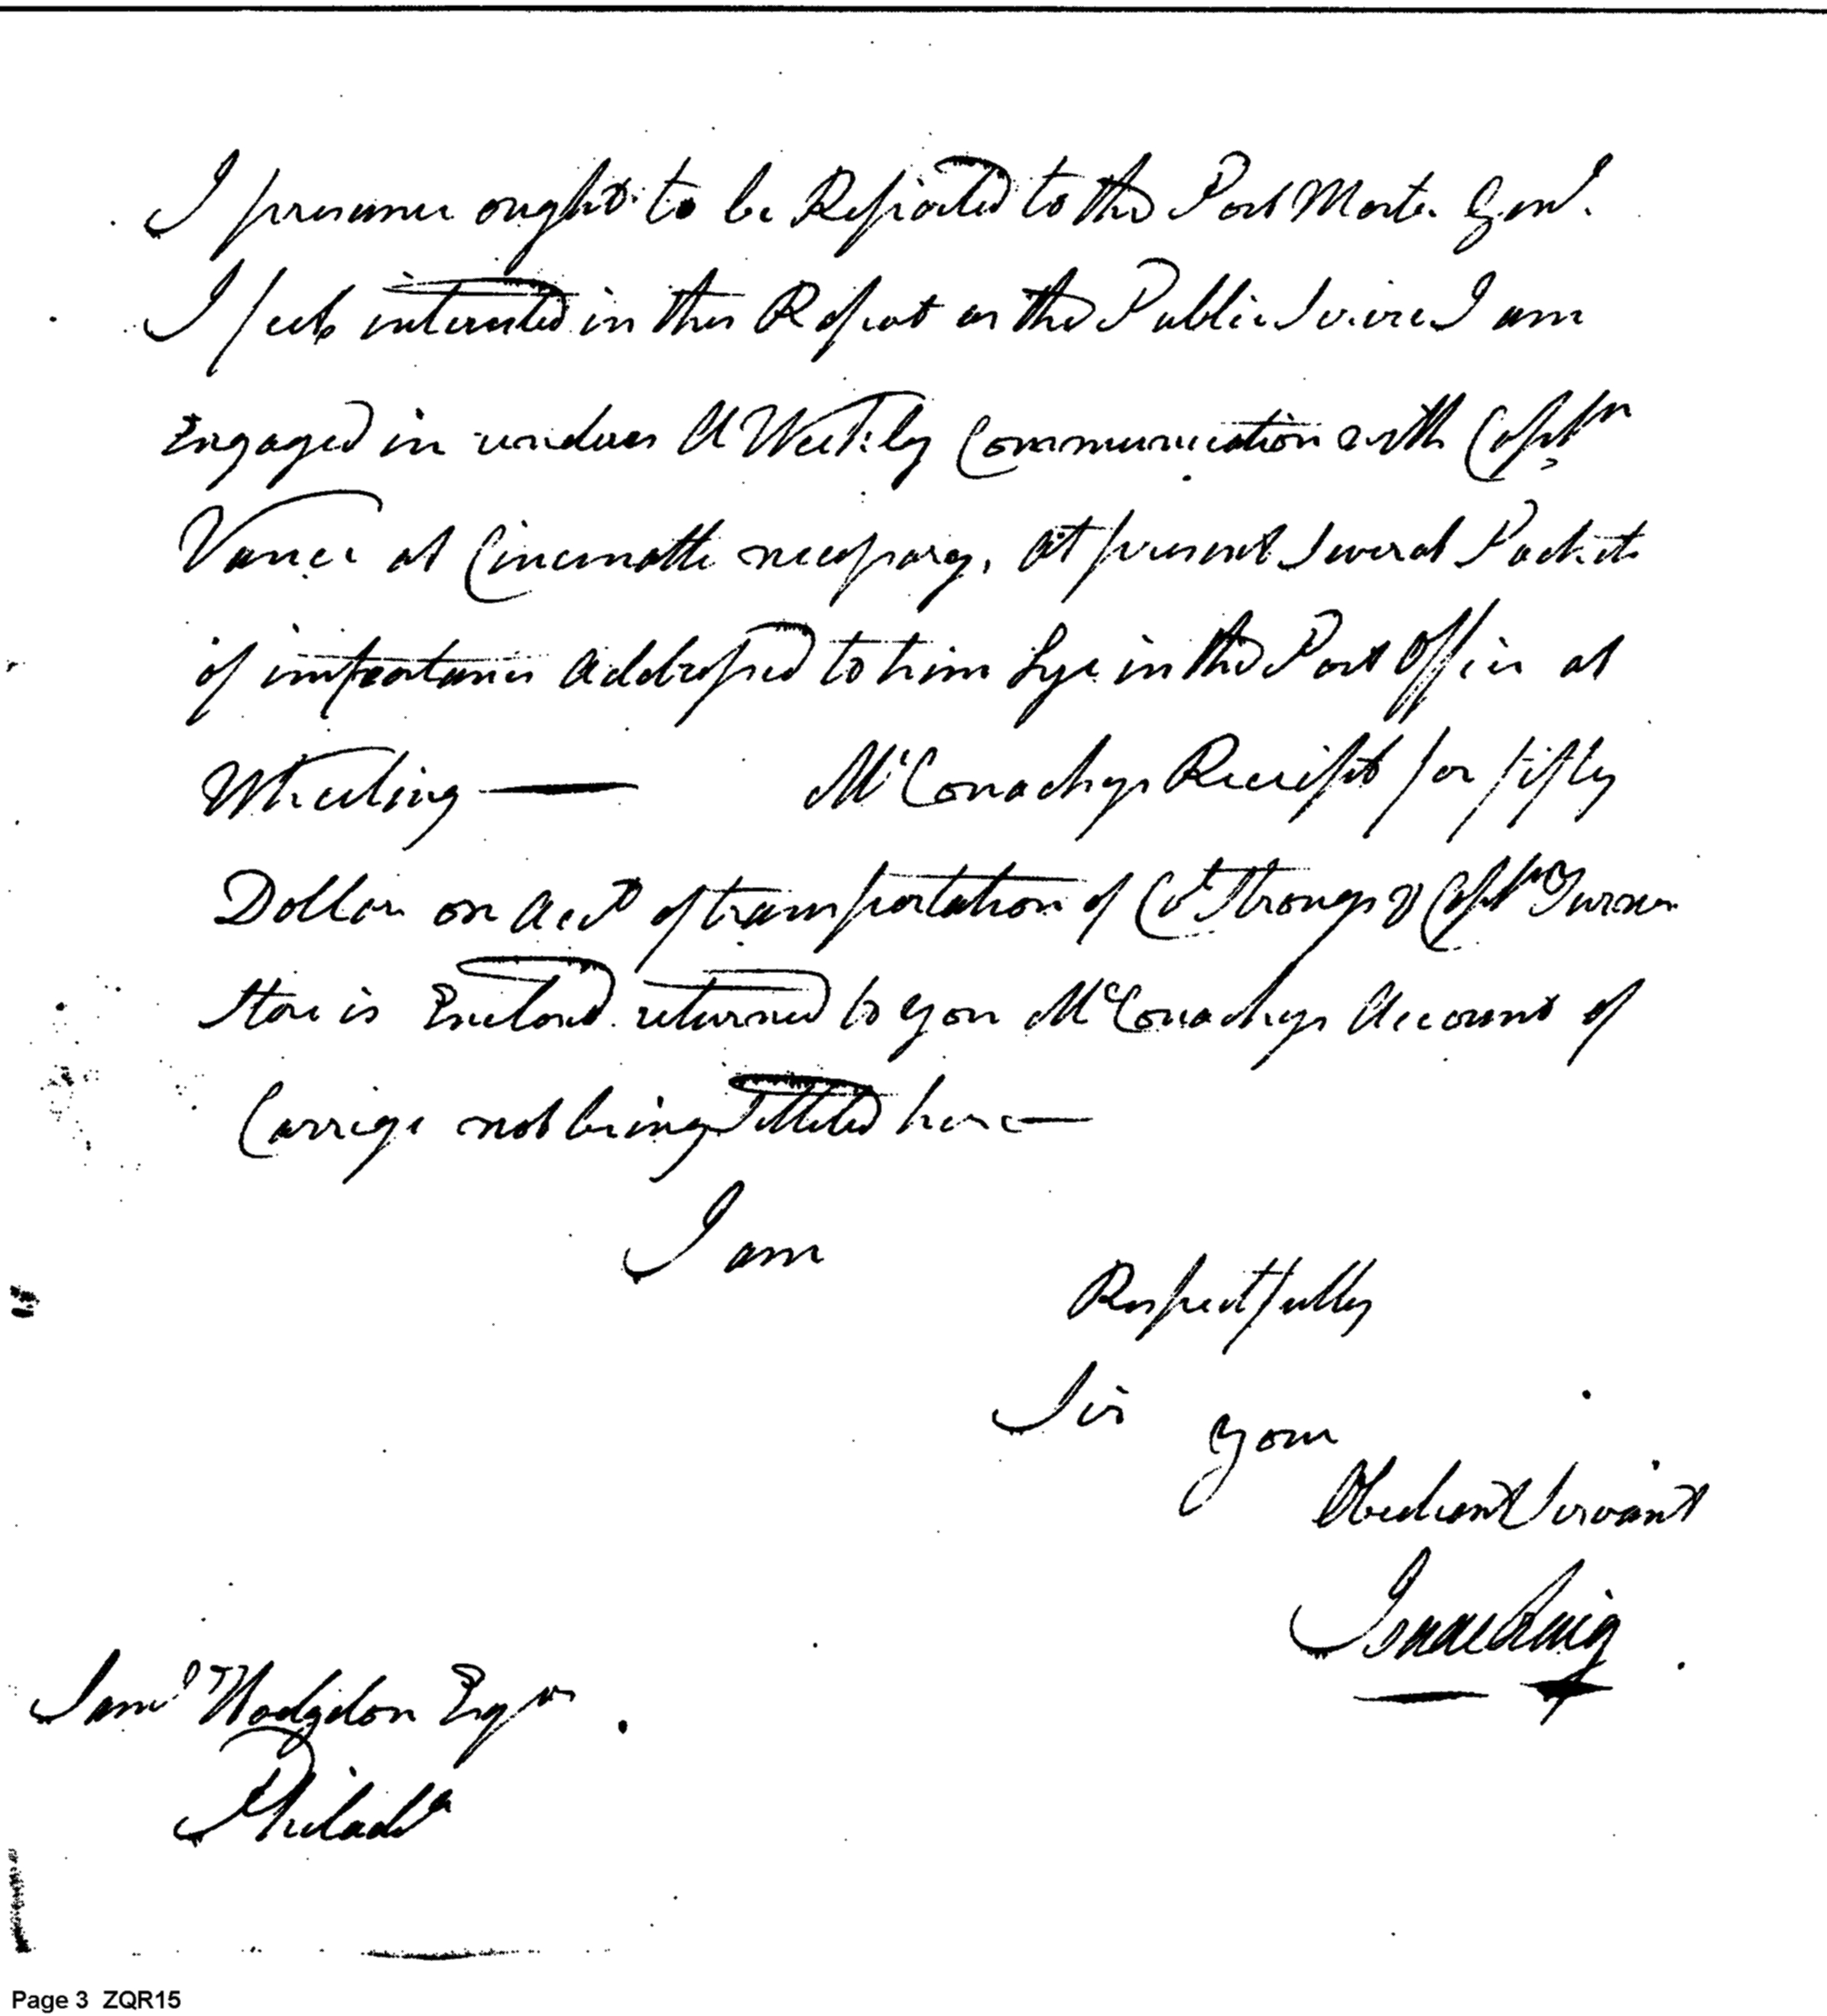 I presume ought to be Reported to the Post Master Genl.
I feel interested in this Report as the Public Service I am
Engaged in renders A Weekly Communication with Captn
Vance at Cincinatti necessary, At present Several Packets
of importance Addressed to him Lye in the Post Office at
Wheeling — McConachys Receipt for fifty
Dollars on acct of transportation of Col Strongs & Captn Turners
Store is Enclosed returned to you McConachys Account of
Carrige not being Settled here —
I am
Respectfully
Sir your
Obedient Servant
Isaac Craig
Saml Hodgdon Esqr.
Philada
Page 3 ZQR15